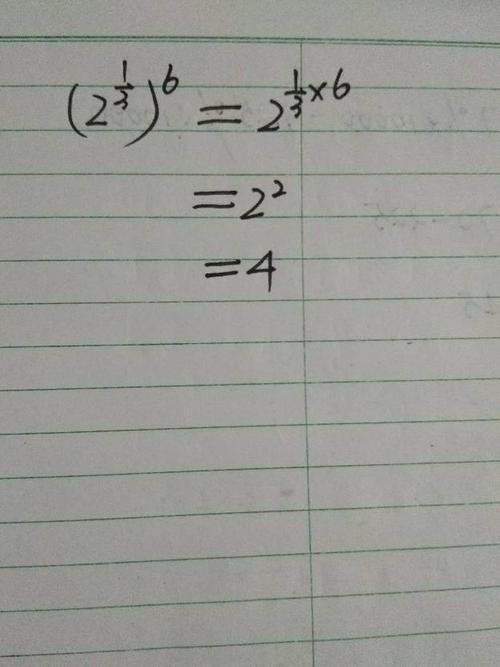 (2^{\frac{1}{3}})^6 = 2^{\frac{1}{3}×6}
= 2^2
= 4